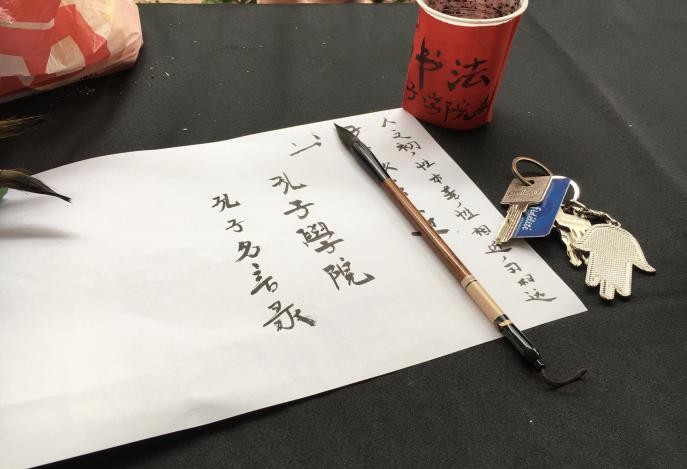 书法
子学院
人之初，性本善，性相近习相远
孔子學院
孔子名言录
fidélité